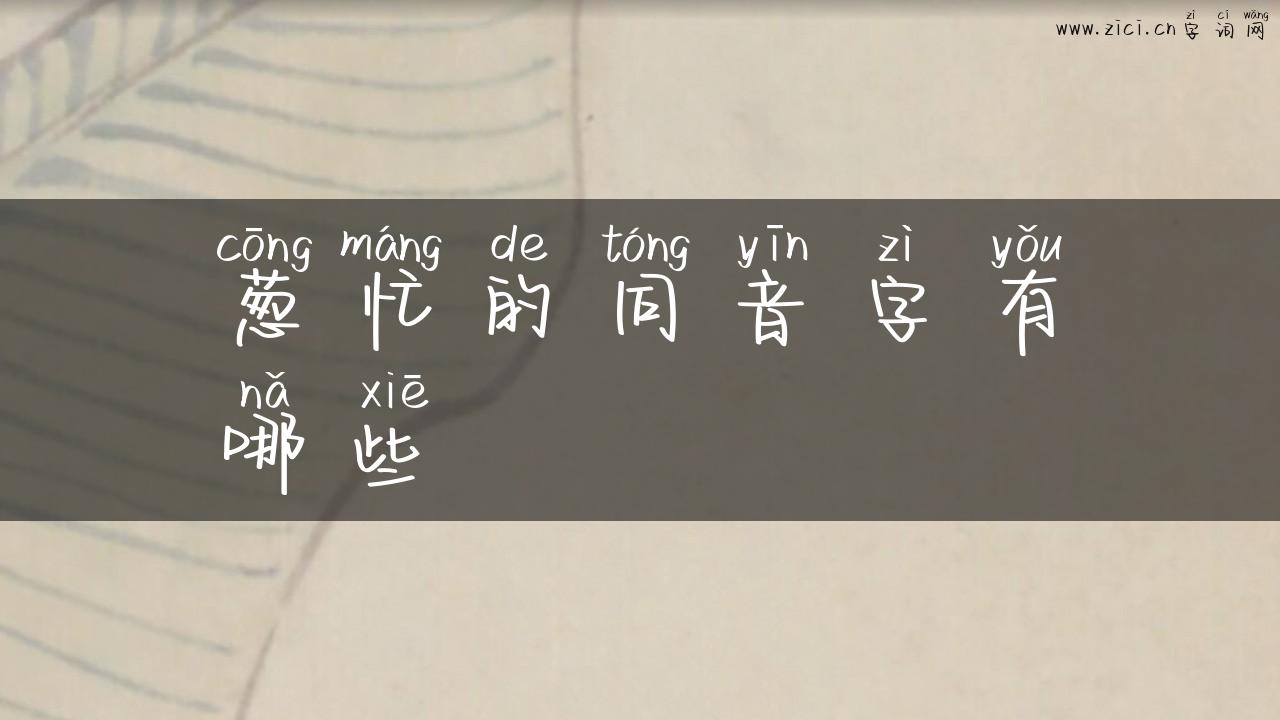 zì cí wǎng
www.zici.cn 字 词 网
cōng máng de tóng yīn zì yǒu
葱 忙 的 同 音 字 有
nǎ xiē
哪 些